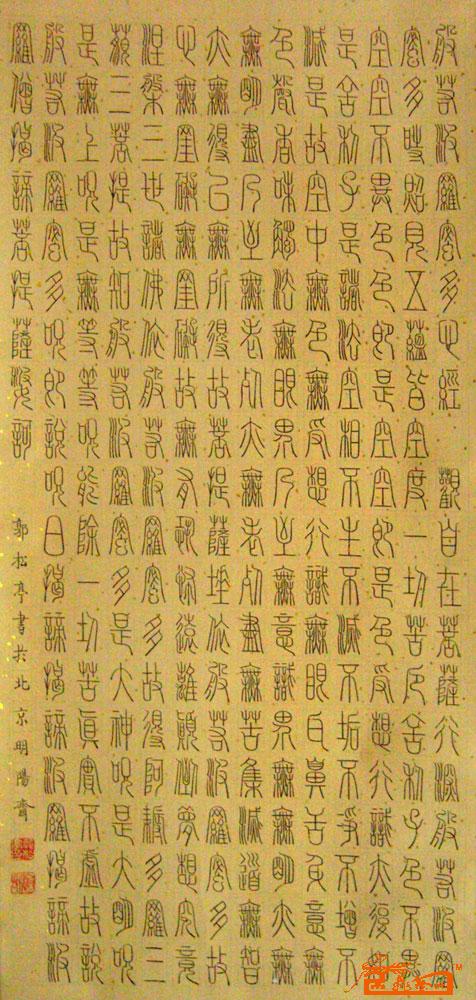 般若波羅蜜多心經 觀自在菩薩行深般若波羅
蜜多時照見五蘊皆空度一切苦厄舍利子色不異
空空不異色色即是空空即是色受想行識亦復如
是舍利子是諸法空相不生不滅不垢不淨不增不
減是故空中無色無受想行識無眼耳鼻舌身意無
色聲香味觸法無眼界乃至無意識界無無明亦無
無明盡乃至無老死亦無老死盡無苦集滅道無智
亦無得以無所得故菩提薩埵依般若波羅蜜多故
心無罣礙無罣礙故無有恐怖遠離顛倒夢想究竟
涅槃三世諸佛依般若波羅蜜多故得阿耨多羅三
藐三菩提故知般若波羅蜜多是大神咒是大明咒
是無上咒是無等等咒能除一切苦真實不虛故說
般若波羅蜜多咒即說咒曰揭諦揭諦波羅揭諦波
羅僧揭諦菩提薩婆訶
郭松亭書於北京明陽齋